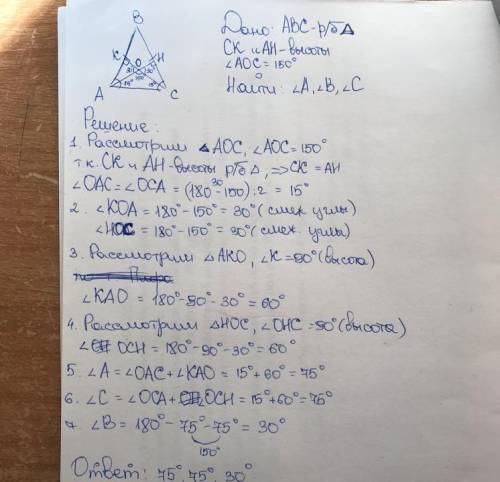 B
K O H
30° 30°
150°
15° 15°
A C
Дано: ABC - р/б △
CK и AH - высоты
∠AOC = 150°
Найти: ∠A, ∠B, ∠C
Решение:
1. Рассмотрим △AOC, ∠AOC = 150°
т.к. CK и AH - высоты р/б △, => CK = AH
30
∠OAC = ∠OCA = (180° - 150°) : 2 = 15°
2. ∠KOA = 180° - 150° = 30° (смеж углы)
∠HOC = 180° - 150° = 30° (смеж. углы)
3. Рассмотрим △AKO, ∠K = 90° (высота)
∠KAO = 180° - 90° - 30° = 60°
4. Рассмотрим △HOC, ∠OHC = 90° (высота)
∠ OCH = 180° - 90° - 30° = 60°
5. ∠A = ∠OAC + ∠KAO = 15° + 60° = 75°
6. ∠C = ∠OCA + ∠OCH = 15° + 60° = 75°
7. ∠B = 180° - 75° - 75° = 30°
150°
Ответ: 75°, 75°, 30°